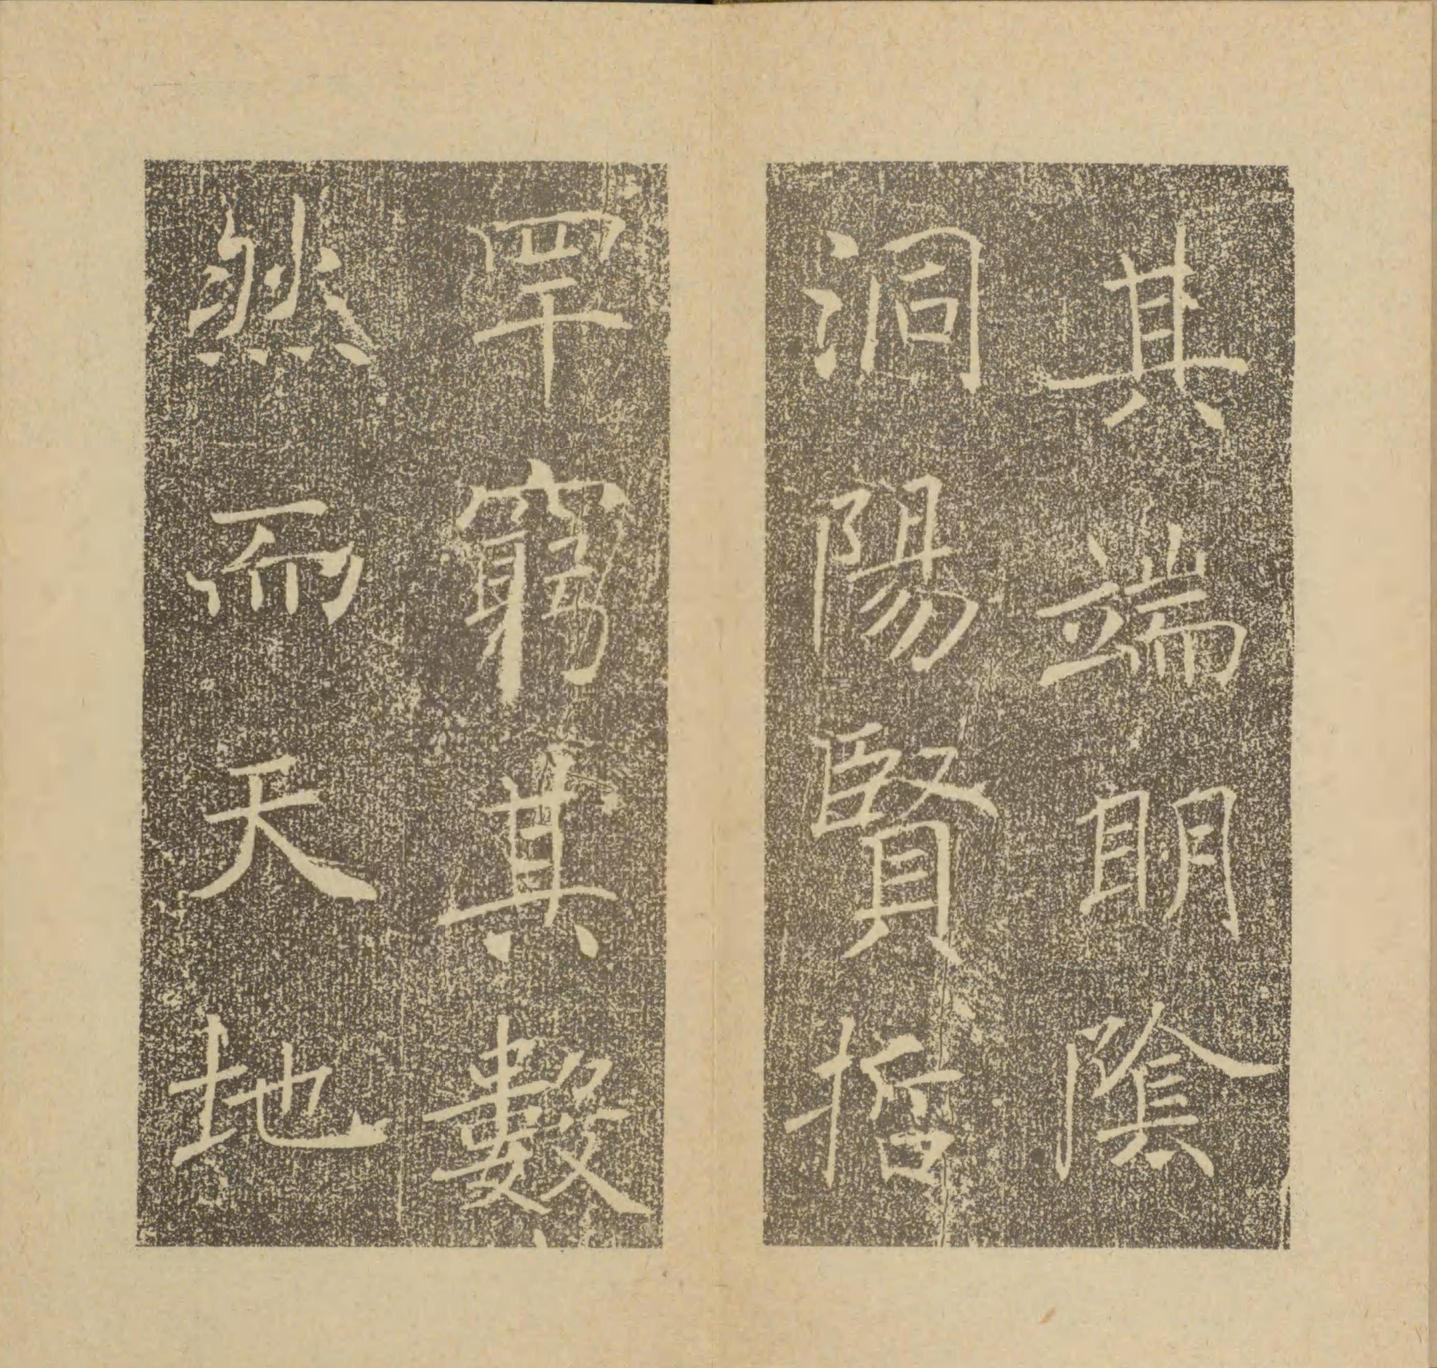 其端明陰
洞陽賢哲
罕窮其數
然而天地